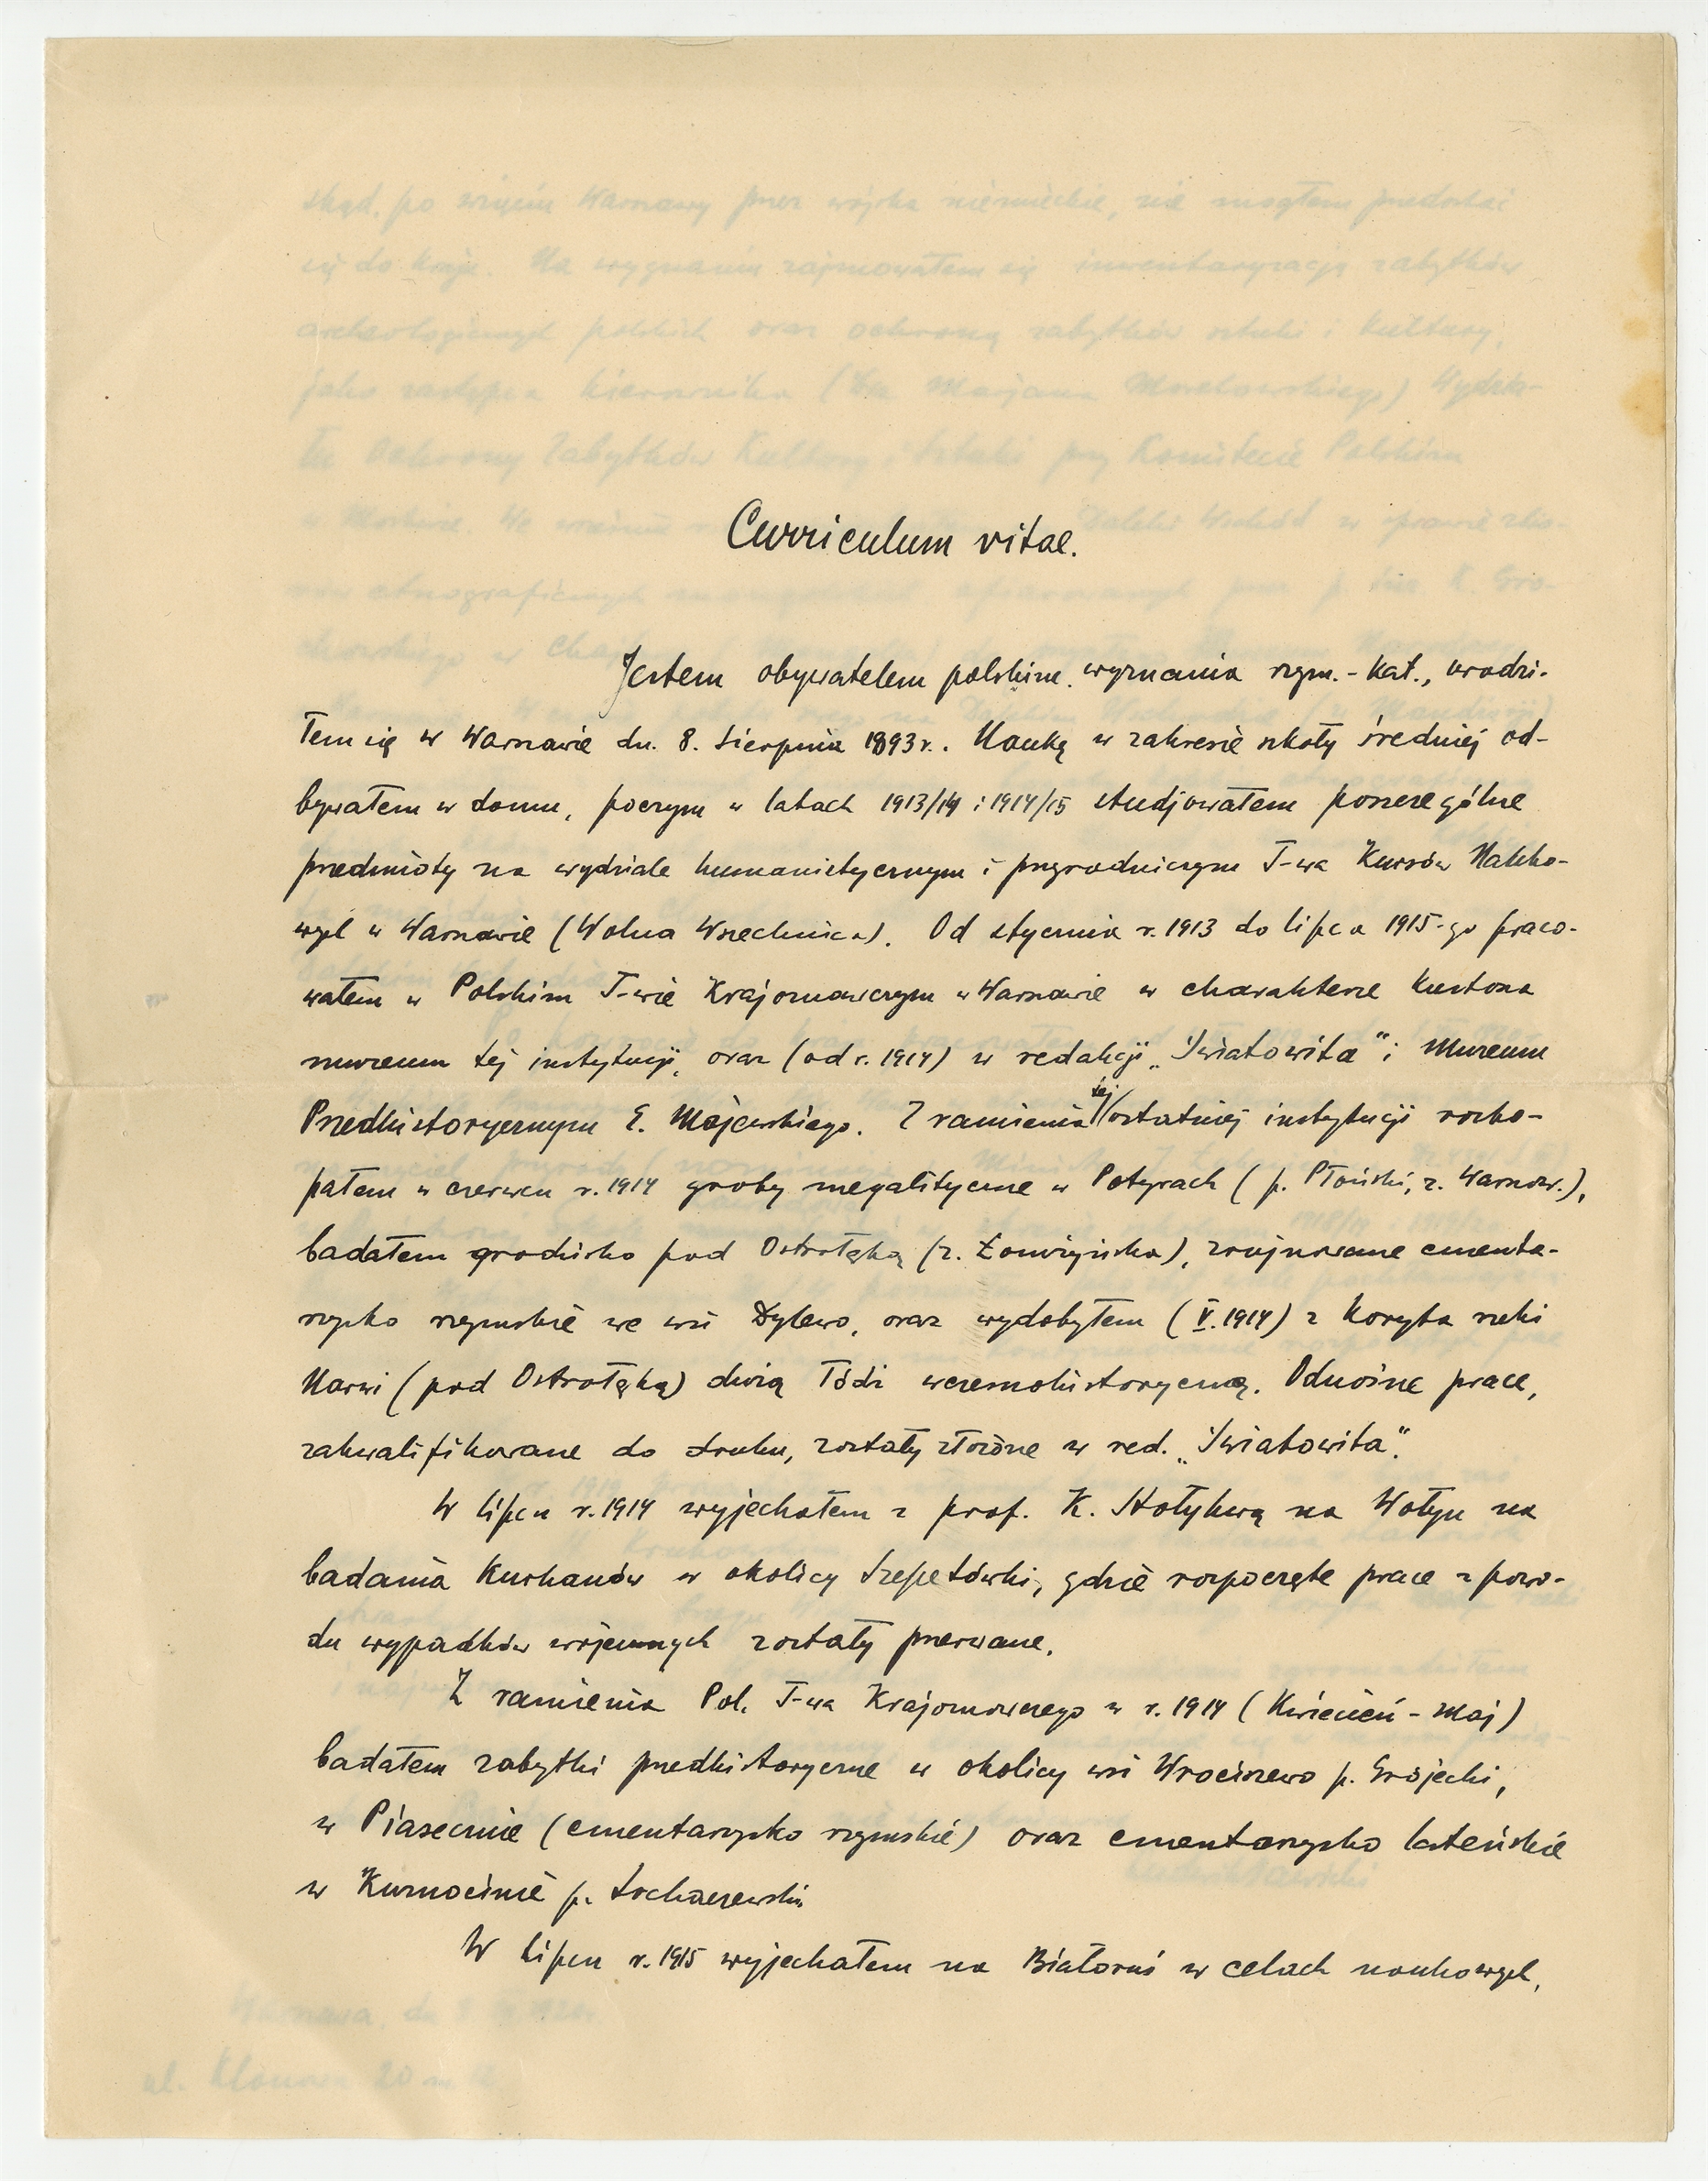 Curriculum vitae.
Jestem obywatelem polskim. wyznania rzym.-kat., urodzi-
łem się w Warszawie dn. 8. sierpnia 1893 r.. Naukę w zakresie szkoły średniej od-
bywałem w domu, poczym w latach 1913/14 i 1914/15 studjowałem poszczególne
przedmioty na wydziale humanistycznym i przyrodniczym T-wa Kursów Nauko-
wych w Warszawie (Wolna Wszechnica). Od stycznia r. 1913 do lipca 1915-go praco-
wałem w Polskim T-wie Krajoznawczym w Warszawie w charakterze kustosza
muzeum tej instytucji, oraz (od r. 1914) w redakcji „Światowita" i Muzeum
Przedhistorycznym E. Majewskiego. Z ramienia tej ostatniej instytucji rozko-
pałem w czerwcu r. 1914 groby megalityczne w Potyrach (p. Płoński, z. Warszw.),
badałem grodzisko pod Ostrołęką (z. Łomżyńska), zrujnowane cmenta-
rzysko rzymskie we wsi Dylewo, oraz wydobyłem (V. 1914) z koryta rzeki
Narwi (pod Ostrołęką) dużą łódź wczesnohistoryczną. Odnośne prace,
zakwalifikowane do druku, zostały złożone w red. „Światowita".
W lipcu r. 1914 wyjechałem z prof. K. Stołyhwą na Wołyń na
badania kurhanów w okolicy Szepetówki, gdzie rozpoczęte prace z powo-
du wypadków wojennych zostały przerwane.
Z ramienia Pol. T-wa Krajoznawczego w r. 1914 (Kwiecień - Maj)
badałem zabytki przedhistoryczne w okolicy wsi Wrociszewo p. Grójecki,
w Piasecznie (cmentarzysko rzymskie) oraz cmentarzysko lateńskie
w Kurnocinie p. Sochaczewski.
W lipcu r. 1915 wyjechałem na Białoruś w celach naukowych,